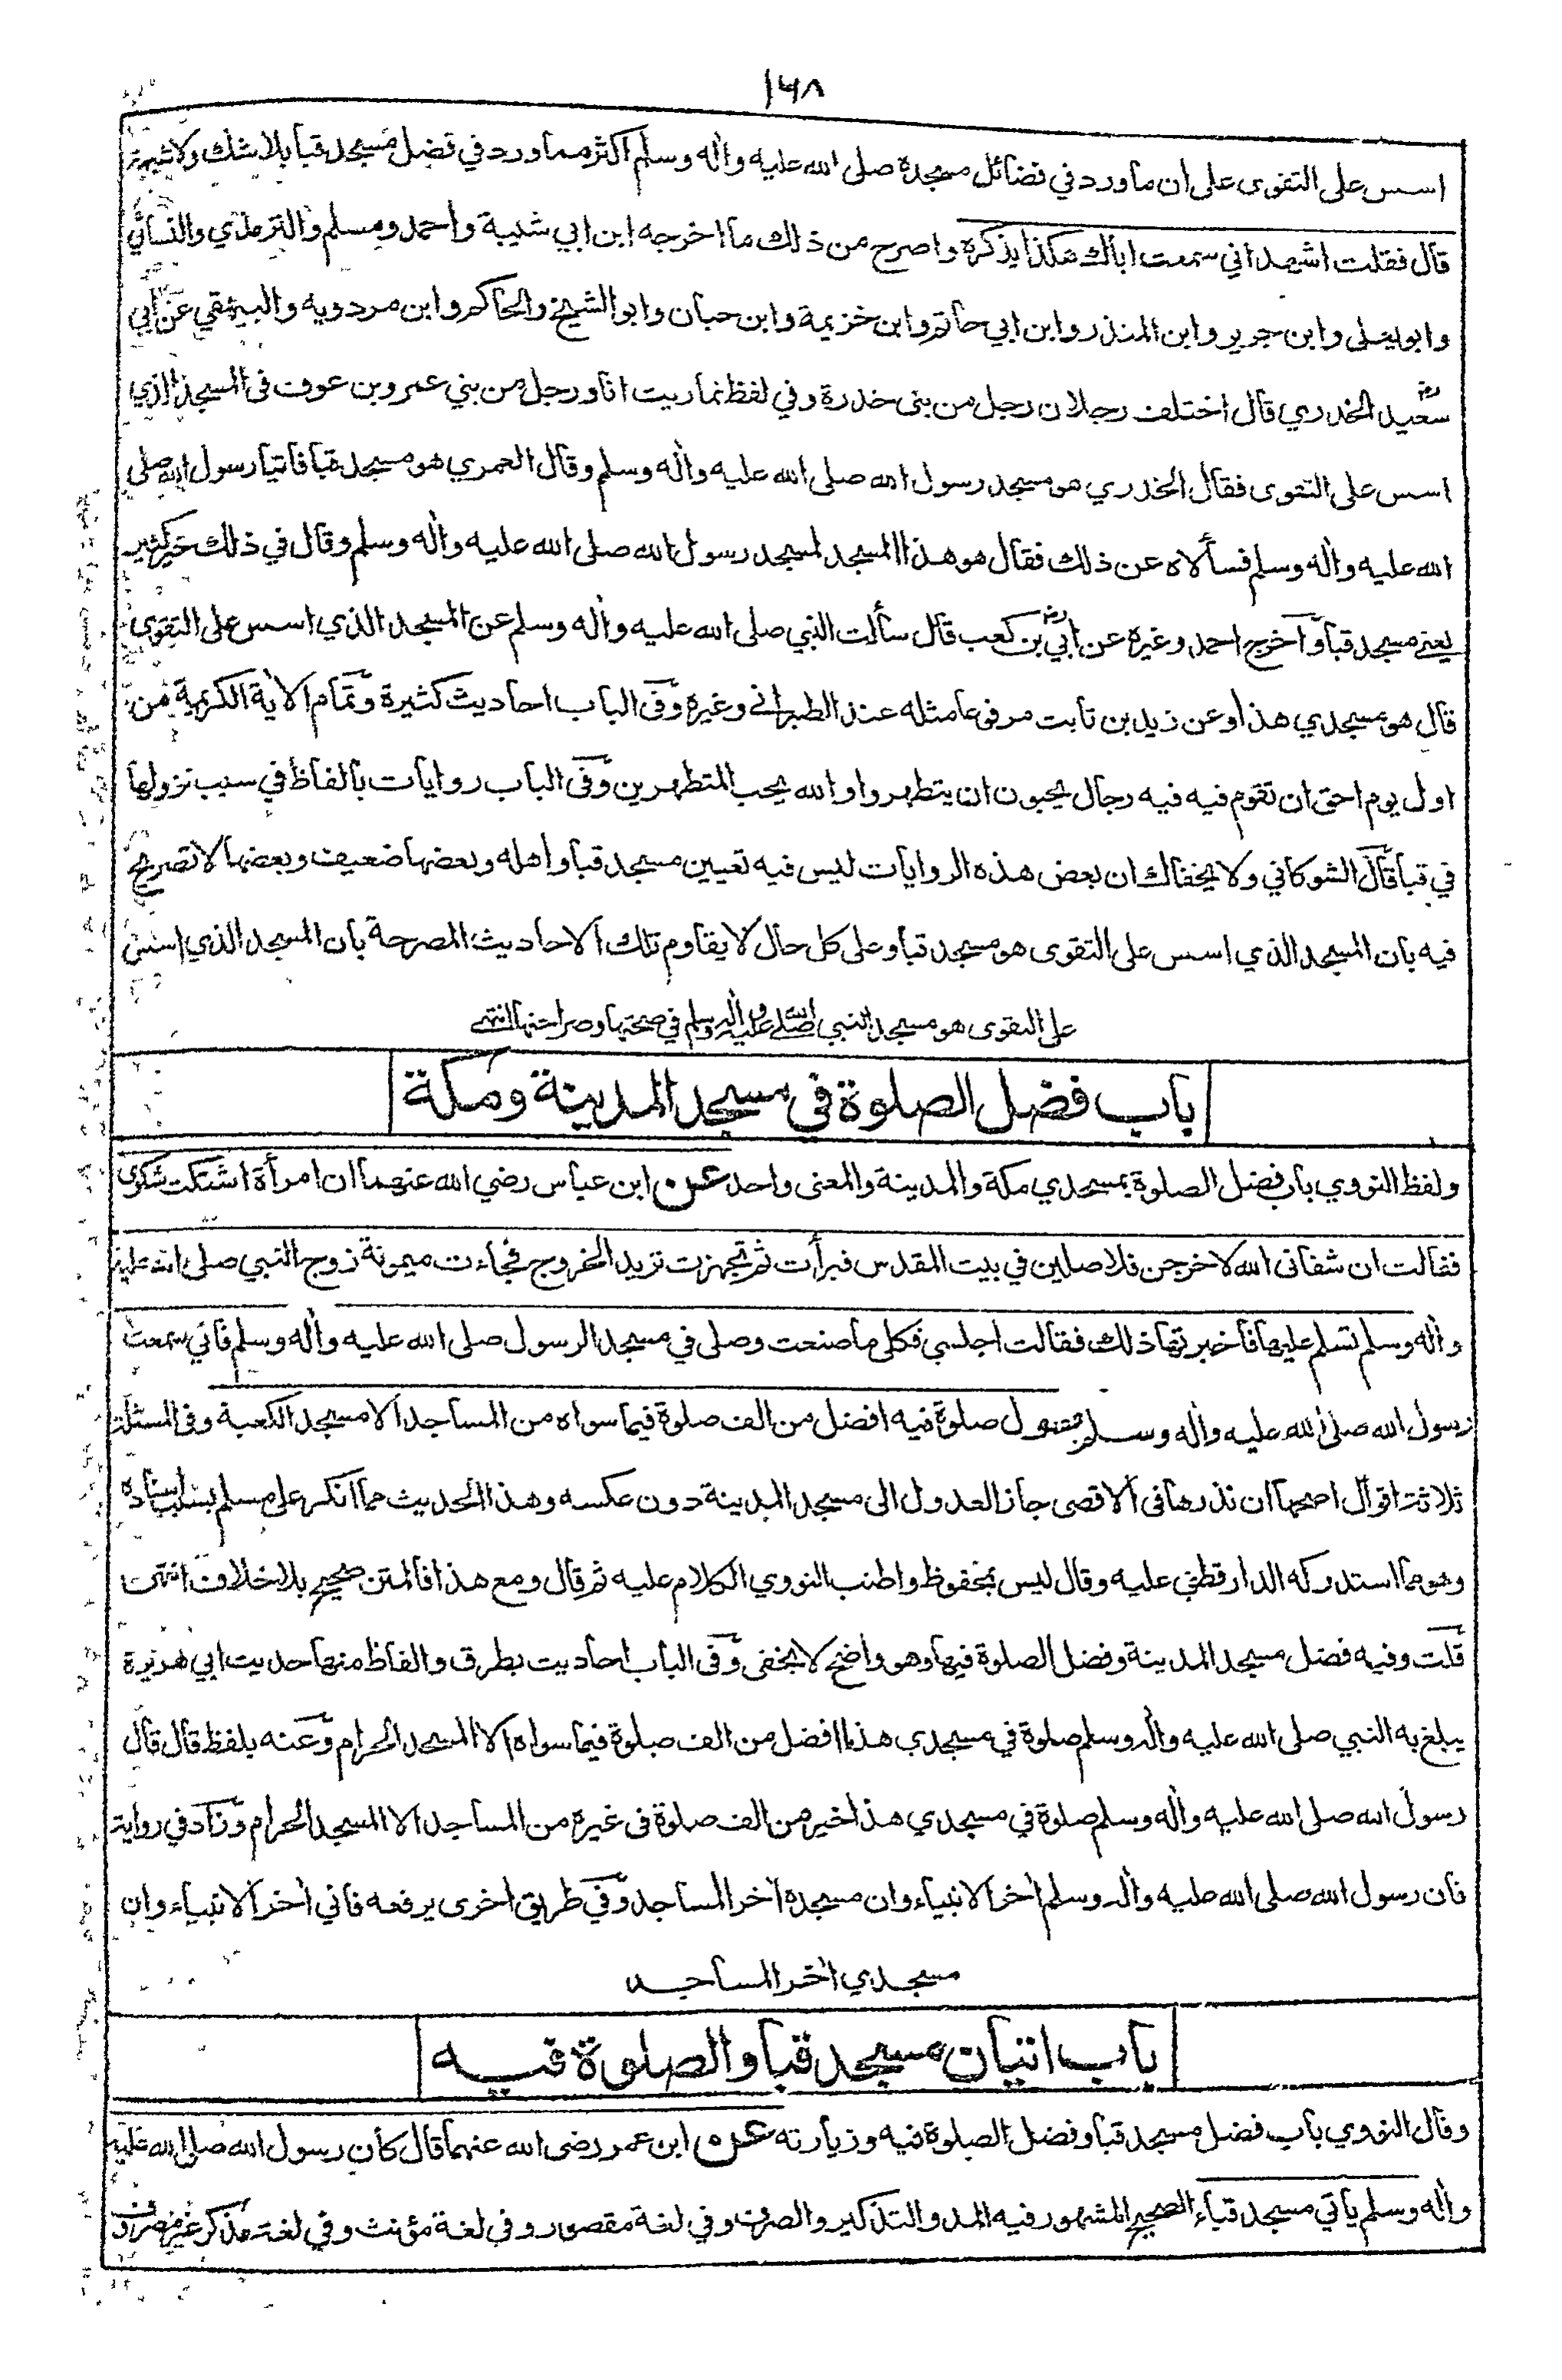 ١٦٨
اسس على التقوى على ان ما ورد في فضائل مسجدة صلى الله عليه واٰله وسلم اكثر مما ورد في فضل مسجد قبا بلا شك ولا شبهة
قال فقلت اشهد اني سمعت اباك هكذا يذكرة واصرح من ذلك ما اخرجه ابن ابي شيبة واحمد ومسلم والترمذي والنسائي
وابو يعلى وابن جرير وابن المنذر وابن ابي حاتم وابن خزيمة وابن حبان وابو الشيخ والحاكم وابن مردويه والبيهقي عن ابي
سعيد الخدري قال اختلف رجلان رجل من بني خدرة وفي لفظ تماريت انا ورجل من بني عمرو بن عوف فى المسجد الذي
اسس على التقوى فقال الخدري هو مسجد رسول الله صلى الله عليه واٰله وسلم وقال العمري هو مسجد قبا فاتيا رسول الله صلى
الله عليه واٰله وسلم فسألاه عن ذلك فقال هو هذا المسجد لمسجد رسول الله صلى الله عليه واٰله وسلم وقال في ذلك خير كثير
يعنے مسجد قبا وآخرج احمد وغيرة عن ابي بن كعب قال سألت النبي صلى الله عليه واٰله وسلم عن المسجد الذي اسس على التقوى
قال هو مسجدي هذا وعن زيد بن ثابت مرفوعا مثله عند الطبرانے وغيرة وفى الباب احاديث كثيرة وتمام الاٰية الكريمة من
اول يوم احق ان تقوم فيه فيه رجال يحبون ان يتطهروا والله يحب المتطهرين وفى الباب روايات بالفاظ في سبب نزولها
في قبا قال الشوكاني ولا يخفاك ان بعض هذه الروايات ليس فيه تعيين مسجد قبا واهله وبعضها ضعيف وبعضها لا تصريح
فيه بان المسجد الذي اسس على التقوى هو مسجد قبا وعلى كل حال لا يقاوم تلك الاحاديث المصرحة بان المسجد الذي اسس
على التقوى هو مسجد النبي صلى الله عليه واٰله وسلم في صحتها وصراحتها انتهى
باب فضل الصلوة في مسجد المدينة ومكة
ولفظ النووي باب فضل الصلوة بمسجدي مكة والمدينة والمعنى واحد عن ابن عباس رضي الله عنهما ان امرأة اشتكت شكوى
فقالت ان شفانى الله لاخرجن فلاصلين في بيت المقدس فبرأت ثم تجهزت تريد الخروج فجاءت ميمونة زوج النبي صلى الله عليه
واٰله وسلم تسلم عليها فاخبرتها ذلك فقالت اجلسي فكلى ما صنعت وصلى في مسجد الرسول صلى الله عليه واٰله وسلم فاني سمعت
رسول الله صلى الله عليه واٰله وسلم يقول صلوة فيه افضل من الف صلوة فيما سواه من المساجد الا مسجد الكعبة وفى المسئلة
ثلاثة اقوال اصحها ان نذرها فى الاقصى جاز العدول الى مسجد المدينة دون عكسه وهذا الحديث مما انكر على مسلم بسبب اسناده
وهو مما استدركه الدارقطني عليه وقال ليس بمحفوظ واطنب النووي الكلام عليه ثم قال ومع هذا فالمتن صحيح بلا خلاف انتهى
قلت وفيه فضل مسجد المدينة وفضل الصلوة فيها وهو واضح لا يخفى وفى الباب احاديث بطرق والفاظ منها حديث ابي هريرة
يبلغ به النبي صلى الله عليه واٰله وسلم صلوة في مسجدي هذا افضل من الف صلوة فيما سواه الا المسجد الحرام وعنه بلفظ قال قال
رسول الله صلى الله عليه واٰله وسلم صلوة في مسجدي هذا خير من الف صلوة فى غيرة من المساجد الا المسجد الحرام وزاد في رواية
فان رسول الله صلى الله عليه واٰله وسلم اٰخر الانبياء وان مسجدة اٰخر المساجد وفي طريق اخرى يرفعه فاني اٰخر الانبياء وان
مسجدي اٰخر المساجد
باب اتيان مسجد قبا والصلوة فيه
وقال النووي باب فضل مسجد قبا وفضل الصلوة فيه وزيارته عن ابن عمر رضى الله عنهما قال كان رسول الله صلى الله عليه
واٰله وسلم ياتي مسجد قباء الصحيح المشهور فيه المد والتذكير والصرف وفي لغة مقصور وفى لغة مؤنث وفي لغة مذكر غير مصروف